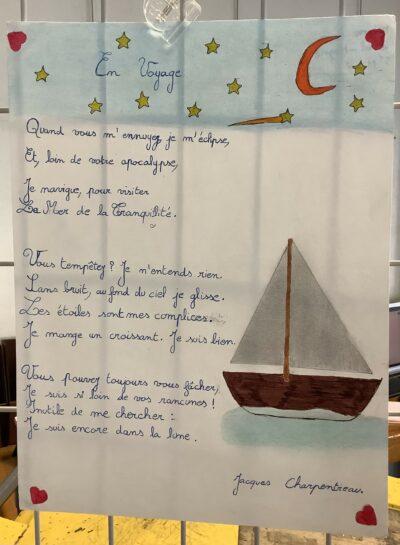 En Voyage
Quand vous m'ennuyez, je m'éclipse,
Et, loin de votre apocalypse,
Je navigue, pour visiter
La Mer de la Tranquilité.
Vous tempêtez ? Je n'entends rien.
Sans bruit, au fond du ciel je glisse.
Les étoiles sont mes complices.
Je mange un croissant. Je suis bien.
Vous pouvez toujours vous fâcher,
Je suis si loin de vos rancunes !
Inutile de me chercher :
Je suis encore dans la lune.
Jacques Charpentreau